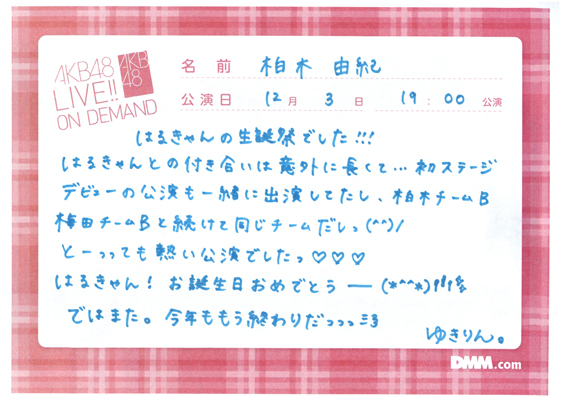 AKB48
LIVE!!
ON DEMAND
AKB
48
名前 柏木 由紀
公演日 12月 3日 19:00 公演
はるきゃんの生誕祭でした!!!
はるきゃんとの付き合いは意外に長くて…初ステージ
デビューの公演も一緒に出演してたし、柏木チームB
梅田チームBと続けて同じチームだしっ(^^)/
とーっっても熱い公演でしたっ♡♡♡
はるきゃん! お誕生日おめでとうー(*^^*)!!!
ではまた。今年ももう終わりだっっっミ3
ゆきりん。
DMM.com